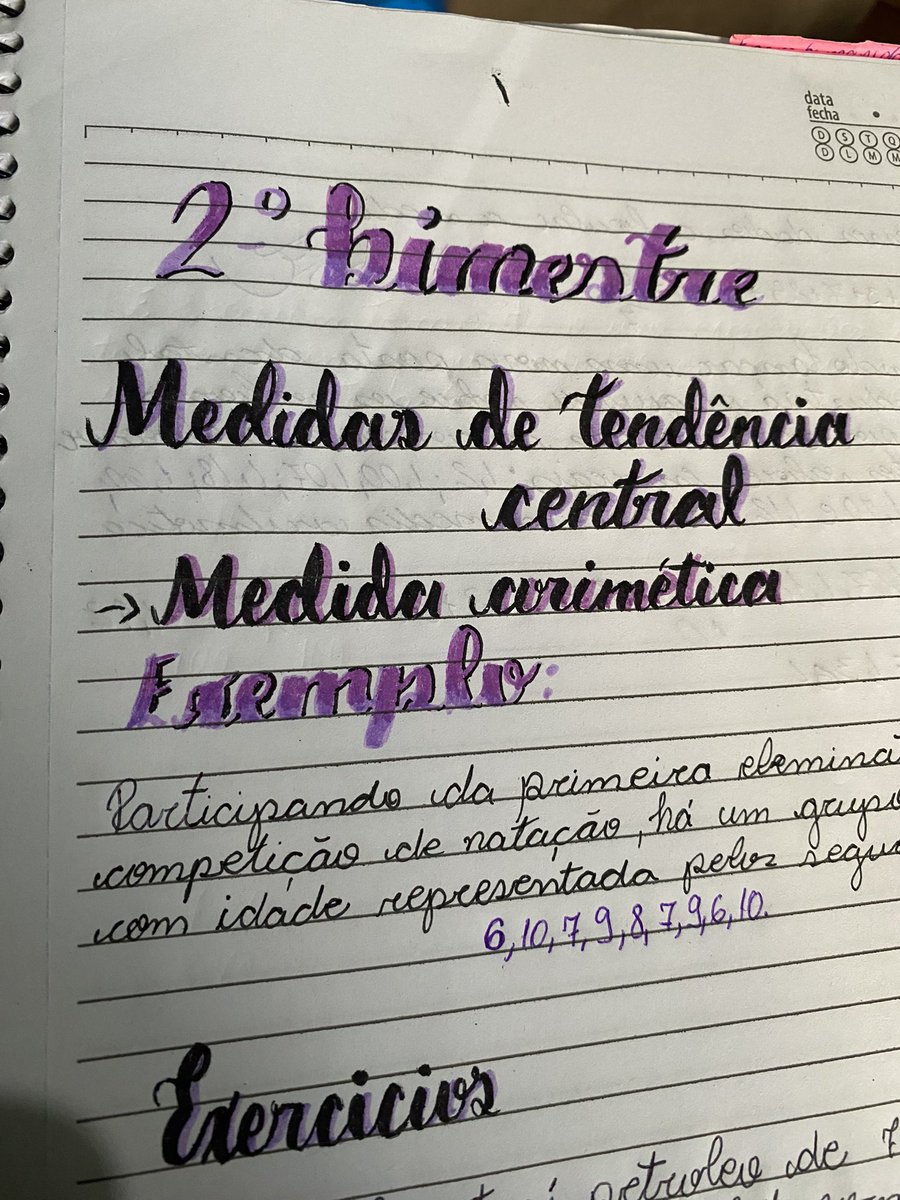 data
fecha
D S T Q
D L M M
2º bimestre
Medidas de tendência
central
→ Medida arimética
Exemplo:
Participando da primeira eleminaç
competição de natação, há um grupo
com idade representada pelos segu
6, 10, 7, 9, 8, 7, 9, 6, 10.
Exercicios
petroleo de 7